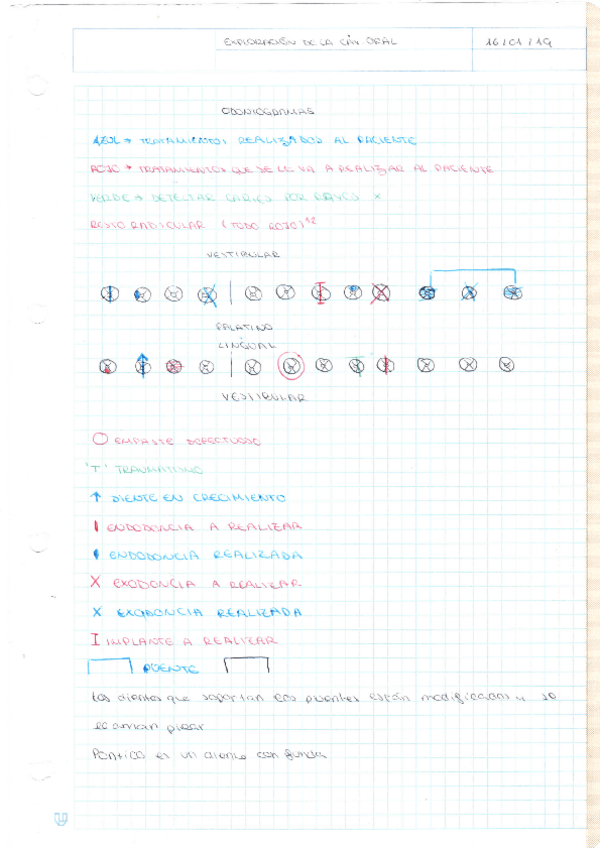 EXPLORACIÓN DE LA CAV. ORAL
16/01/19
ODONTOGRAMAS
AZUL → TRATAMIENTOS REALIZADOS AL PACIENTE
ROJO → TRATAMIENTOS QUE SE LE VA A REALIZAR AL PACIENTE
VERDE → DETECTAR CARIES POR RAYOS X
RESTO RADICULAR (TODO ROJO)
VESTIBULAR
PALATINO
LINGUAL
VESTIBULAR
O EMPASTE DEFECTUOSO
'T' TRAUMATISMO
↑ DIENTE EN CRECIMIENTO
ENDODONCIA A REALIZAR
ENDODONCIA REALIZADA
X EXODONCIA A REALIZAR
X EXODONCIA REALIZADA
I IMPLANTE A REALIZAR
PUENTE
Los dientes que soportan los puentes están modificados y se
le llaman pilar
Póntico es un diente con funda